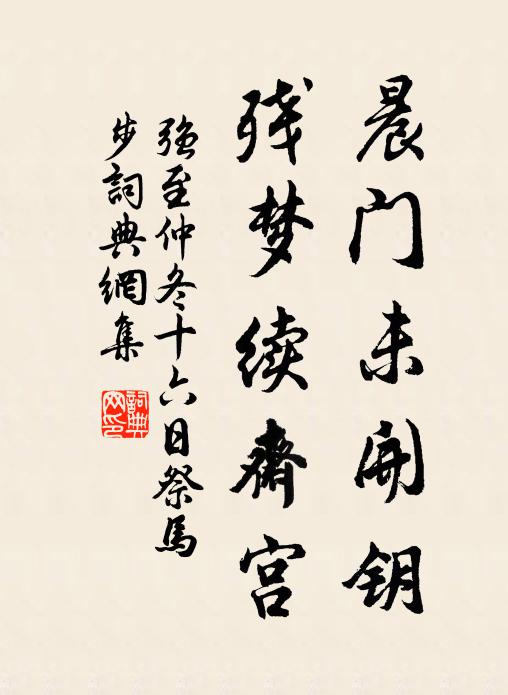 晨门未開钥
残梦续齋宫
強至仲冬十六日祭馬
步詞典網集
詞典
网印